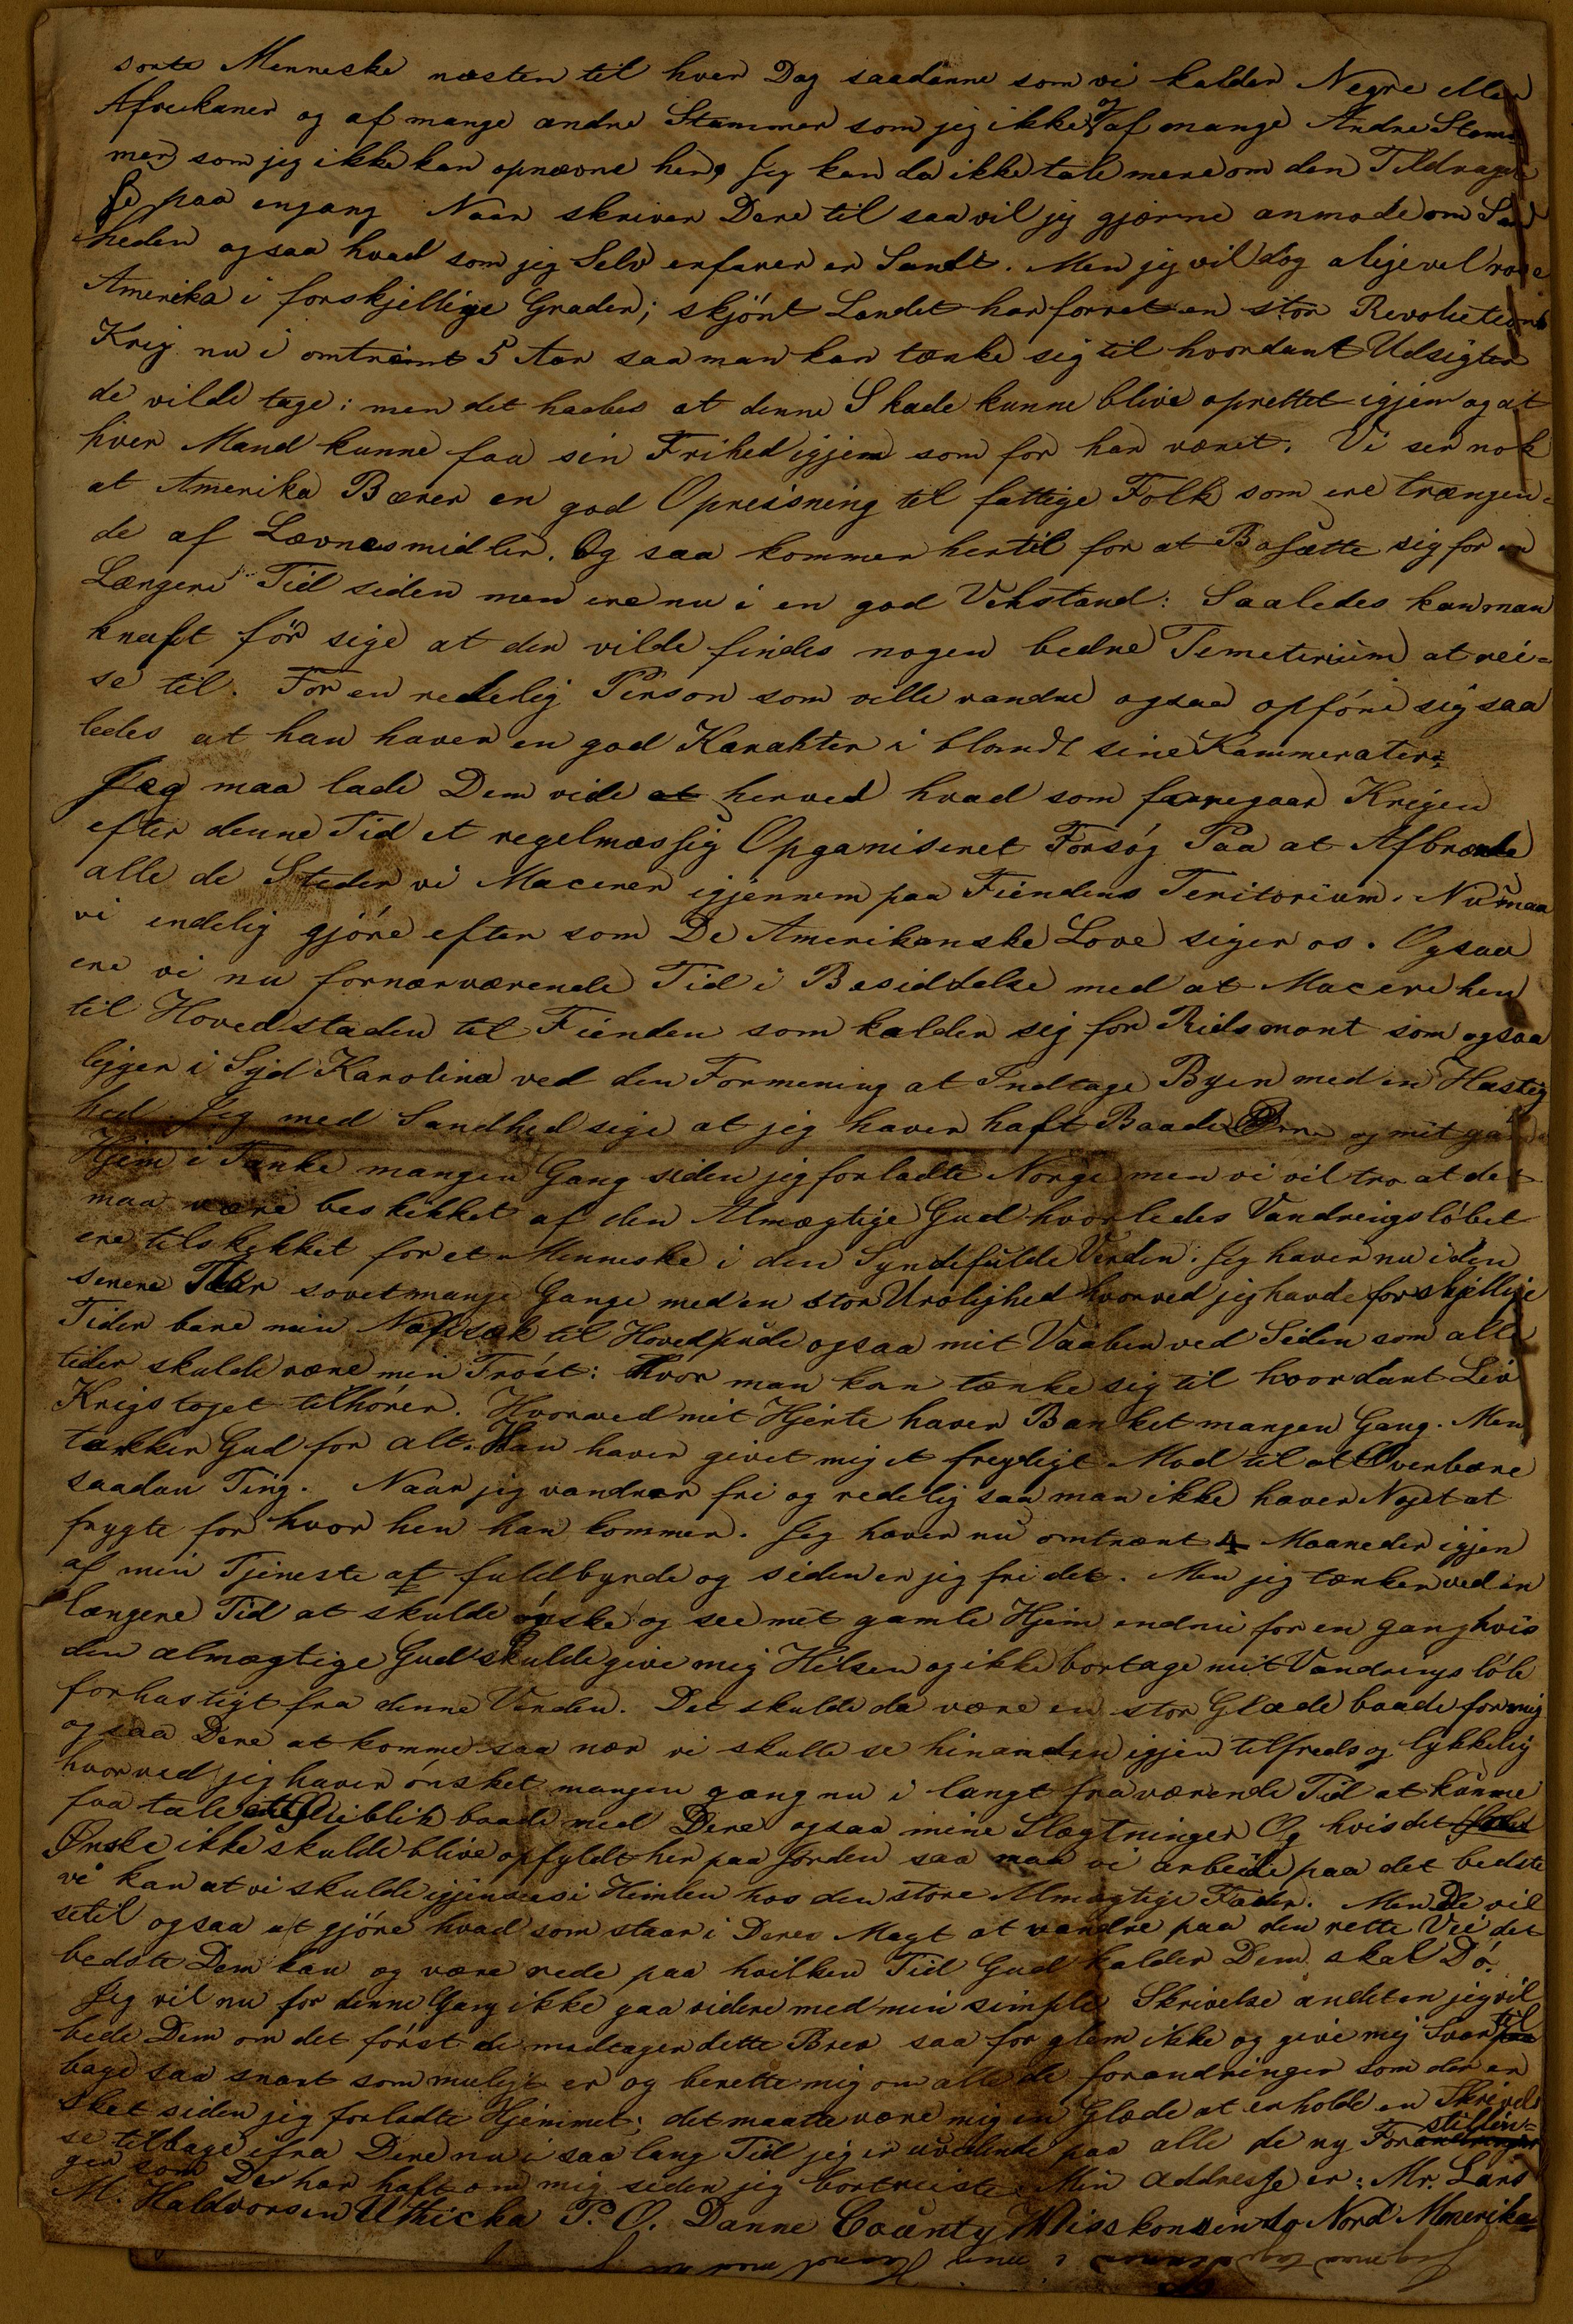 sorte Menneske næsten til hver Dag saadanne som vi kalder Negre eller
Afreikaner og af mange andre Stammer som jeg ikke af mange Andre Stam=
mer som jeg ikke kan opnævne her, Jeg kan da ikke tale mere om den Tildragel
se paa engang Naar skriver Dere til saa vil jeg gjærne anmode om Sand
heden ogsaa hvad som jeg Selv erfarer er Sandt. Men jeg vil dog aligevel rose
Amerika i forskjellige Grader; skjönt Landet har forret en stor Revolutions
Krig nu i omtræint 5 Aar saa man kan tænke sig til hvordant Udsigter
de vilde tage: men det haabes at denne Skade kunne blive oprettet igjen og at
hver Mand kunne faa sin Frihed igjen som for har været. Vi ser nok
at Amerika Bærer en god Opreisning til fattige Folk som ere trængen=
de af Lævnesmidler. Og saa kommer hertil for at Bosætte sig for en
Længere Tid siden men ere nu i en god Velstand: Saaledes kan man
knaft för sige at der vilde findes nogen bedre Temeterium at rei=
se til. For en redelig Person som ville vandre ogsaa opföre sig saa
ledes at han haver en god Karakter i blandt sine Kammerater.
Jeg maa lade Dem vide at herved hvad som faaregaar Krigen
efter denne Tid et regelmæssig Opganiseret Forsög Paa at Afbrænde
alle de Steder vi Macerer igjennem paa Fiendens Teritorium. Nu maa
vi endelig gjöre efter som De Amerikanske Love siger os. Ogsaa
ere vi nu fornærværende Tid i Besiddelse med at Macere hen
til Hovedstaden til Fienden som kalder sig for Ridsmont som ogsaa
ligger i Syd Karolina ved den Formening at Indtage Byen med en Hastig
hed Jeg med Sandhed sige at jeg haver haft Baade Dere og mit gamle
Hjem i Tanke mangen Gang siden jeg forladte Norge men vi vil tro at det
maa være beskikket af den Almægtige Gud hvorledes Vandreigslöbet
ere tilskykket for et Menneske i den Syndefulde Verden. Jeg haver nu i den
senere Tider sovet mange Gange med en stor Urolighed hvorved jeg havde forskjellige
Tider bare min Nafsæk til Hovedpude ogsaa mit Vaaben ved Siden som alle
tider skulde være min Tröst: Hvor man kan tænke sig til hvordant Liv
Krigstoget tilhörer. Hvorved mit Hjerte haver Banket mangen Gang. Men
takker Gud for alt. Han haver givet mig et freydigt Mod til at Overbære
saadan Ting. Naar jeg vandrer fri og redelig saa man ikke haver Noget at
frygte for hvor hen han kommer. Jeg haver nu omtrænt 4 Maaneder igjen
af min Tjeneste at fuldbyrde og siden er jeg fri det. Men jeg tænker ved en
længere Tid at skulde önske og see mit gamle Hjem endnu for en gang hvis
den almægtige Gud skulde give mig Hilsen og ikke bortage mit Vandrings löb
forhastigt fra denne Verden. Det skulde da være en stor Glæde baade for mig
ogsaa Dere at komme saa nær vi skulle se hinanden igjen tilfreds og lykkelig
hvorved jeg haver önsket mangen gang nu i langt fraværende Tid at kunne
faa tale et Öieblik baade med Dere ogsaa mine Slægtninger Og hvis det
Ønske ikke skulde blive opfyldt her paa Jorden saa maa vi arbeide paa det bedste
vi kan at vi skulde igjensees i Himlen hos den store Almægtige Fader. Men De vil
setil ogsaa at gjöre hvad som staar i Deres Magt at vandre paa den rette Vei det
bedste Dem kan og være rede paa hvilken Tiid Gud kalder Dem skal Dö.
Jeg vil nu for denne Gang ikke gaa videre med min simple Skrivelse andet en jeg vil
bede Dem om det först de modtager dette Brev saa for glem ikke og give mig Svar til
bage saa snart som muligt er og berette mig om alle de forandringer som der er
sket siden jeg forladte Hjemmet; det maatte være mig en Glæde at erholde en Skrivel
se tilbage ifra Dere nu i saa lang Tid jeg er uvidende paa alle de ny Forestillin=
ger som De har haft om mig siden jeg bortreiste Min addresse er: Mr. Lars
M. Haldvorsen Uthicka P. O. Danne County Wisskonsin Nord Amerika